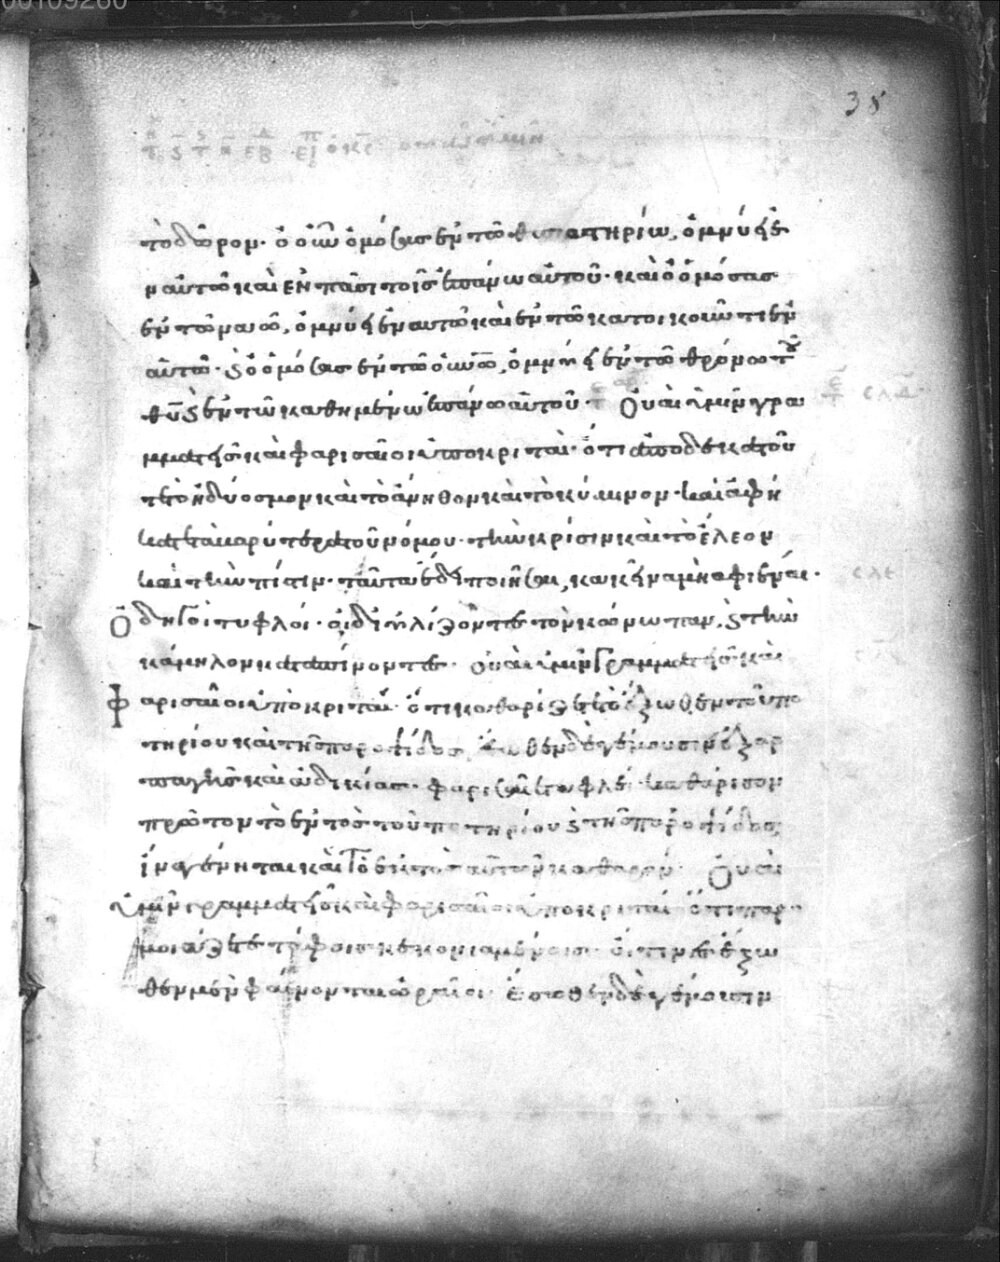 00109260
38
τὸ δῶρον· ὁ οὖν ὀμόσας ἐν τῶ θυσιαστηρίω, ὀμνύει ἐ
ν αὐτῶ καὶ ἐν πᾶσι τοῖς ἐπάνω αὐτοῦ· καὶ ὁ ὀμόσας
ἐν τῶ ναῶ, ὀμνύει ἐν αυτῶ καὶ ἐν τῶ κατοικοῦντι ἐν
αὐτῶ· ϗ ὁ ὀμόσας ἐν τῶ οὐνῶ, ὀμνύει ἐν τῶ θρόνω τοῦ
θυ ϗ ἐν τῶ καθημένω ἐπάνω αὐτοῦ· Οὐαὶ ὑμῖν γρα
μματεῖς καὶ φαρισαῖοι ὑποκριταὶ· ὅτι ἀποδεκατοῦ
τε τὸ ἡδύοσμον καὶ τὸ ἄνηθον καὶ τὸ κύμινον· καὶ ἀφή
κατε τὰ βαρύτερα τοῦ νόμου· τὴν κρίσιν καὶ τὸ ἔλεον
καὶ τὴν πίστιν· ταῦτα ἔδει ποιῆσαι, κακεῖνα μὴ αφιέναι·
Ὁδηγοὶ τυφλοί· οἱ διϋλίζοντες τὸν κώνωπαν, ϗ τὴν
κάμηλον καταπίνοντες· οὐαὶ ὑμῖν Γραμματεῖς καὶ
Φαρισαῖοι ὑποκριταί· ὅτι καθαρίζετε τὸ ἔξωθεν τοῦ πο
τηρίου καὶ τῆς παροψίδος, ἔσωθεν δὲ γέμουσιν ἐξ ἁρ
παγῆς καὶ ἀδικίας· φαρισαῖε τυφλέ· καθάρισον
πρῶτον τὸ ἐντὸς τοῦ ποτηρίου ϗ τῆς παροψίδος,
ἵνα γένηται καὶ Τὸ ἐκτὸς αὐτῶν καθαρόν· Οὐαὶ
ὑμῖν γραμματεῖς καὶ φαρισαῖοι ὑποκριταί· ὅτι παρο
μοιάζετε τάφοις κεκονιαμένοις· οἵτινες ἔξω
θεν μὲν φαίνονται ὡραῖοι· ἔσωθεν δὲ γέμουσιν